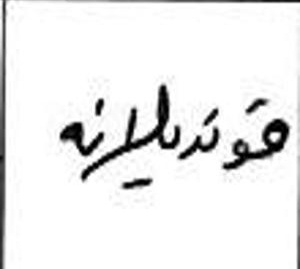 قوندیلانه